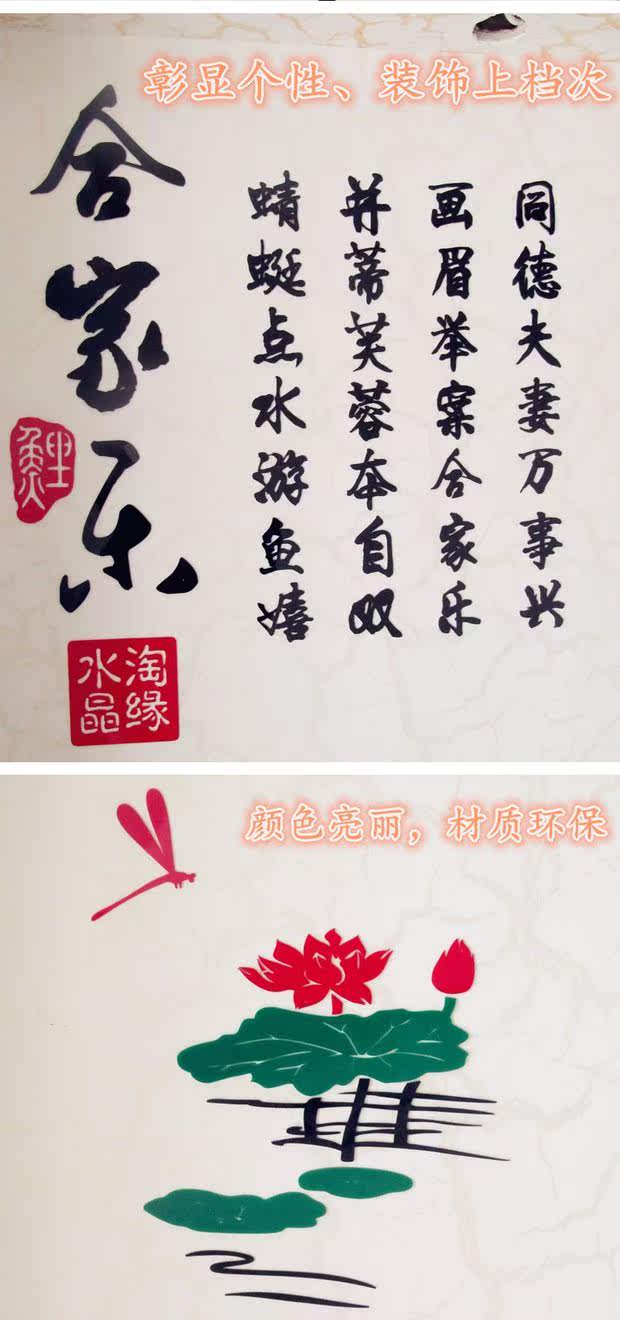 彰显个性、装饰上档次
合家乐
同德夫妻万事兴
画眉举案合家乐
并蒂芙蓉本自双
蜻蜓点水游鱼嬉
鲤
淘缘
水晶
颜色亮丽，材质环保